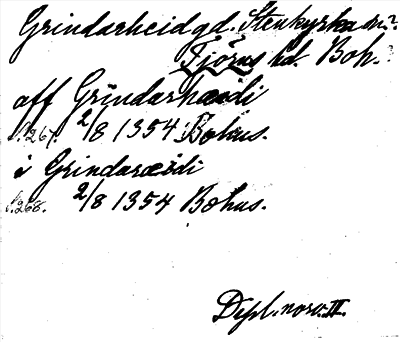 Grindarheid gd. Stenkyrka sn.?
Tjörns hd. Boh.
aff Grindarhæidi
s.267. 2/8 1354 Bohus.
i Grindaræidi
s.268. 2/8 1354 Bohus.
Dipl. norv. II.